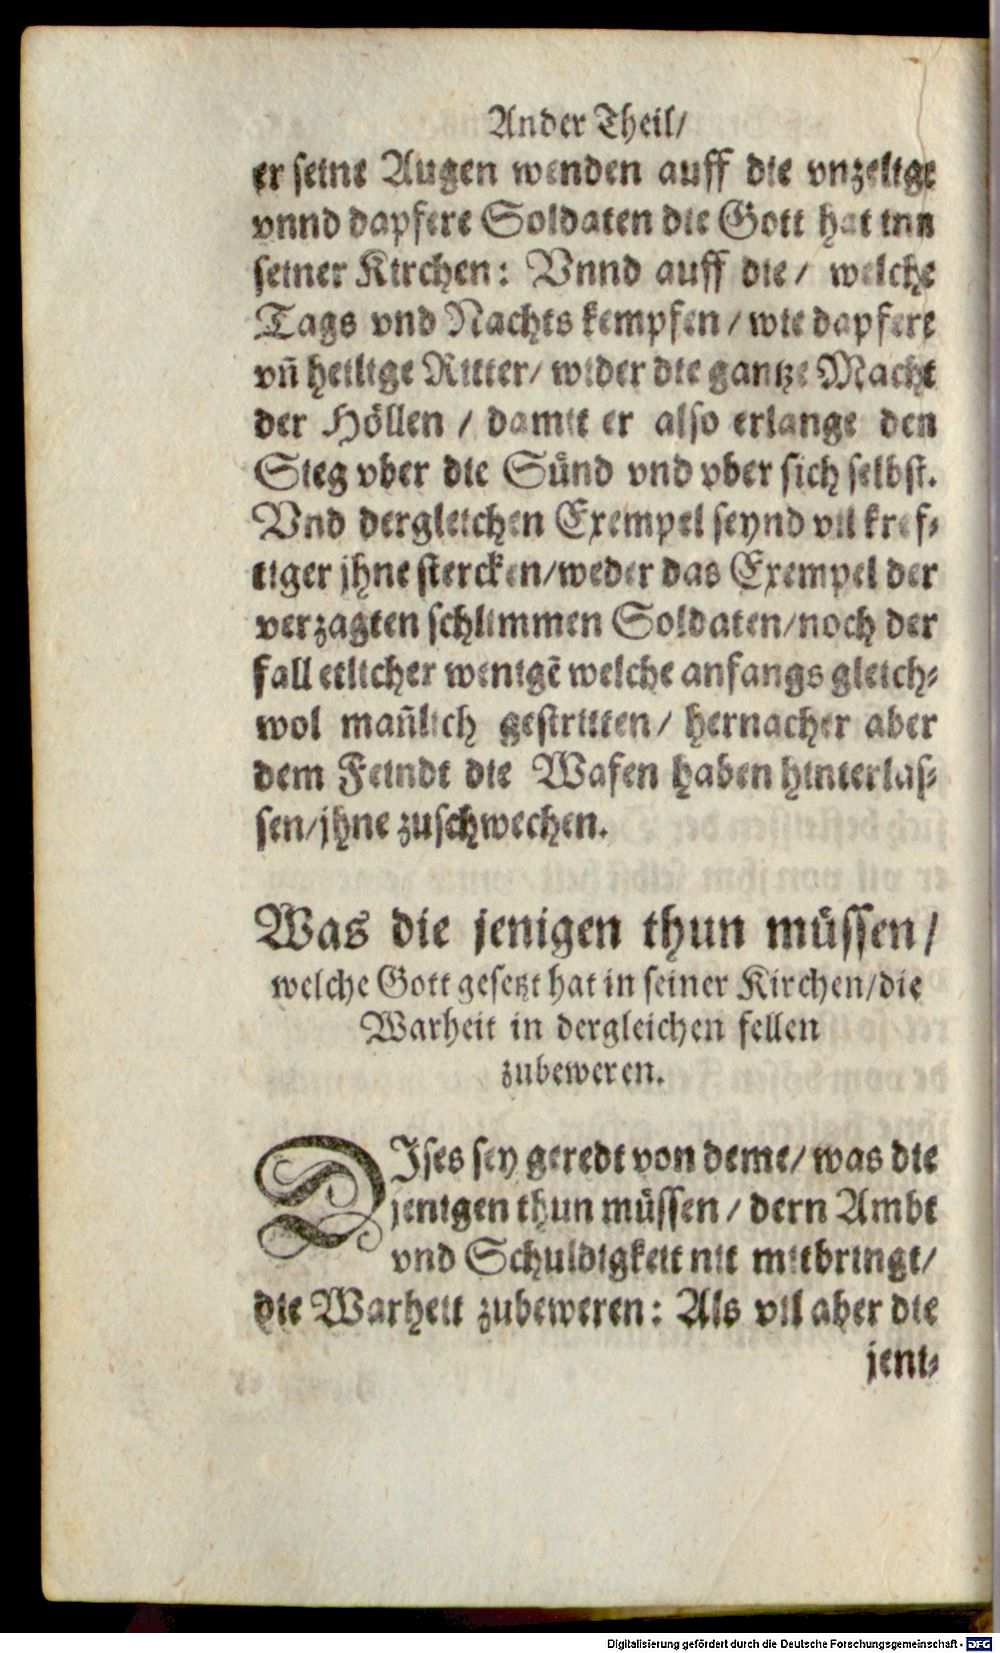 Ander Theil/
er seine Augen wenden auff die vnzelige
vnnd dapfere Soldaten die Gott hat inn
seiner Kirchen: Vnnd auff die/ welche
Tags vnd Nachts kempfen/wie dapfere
vñ heilige Ritter/ wider die gantze Macht
der Höllen / damit er also erlange den
Sieg vber die Sünd vnd vber sich selbst.
Vnd dergleichen Exempel seynd vil kref-
tiger jhne stercken/weder das Exempel der
verzagten schlimmen Soldaten/noch der
fall etlicher wenigẽ welche anfangs gleich-
wol mañlich gestritten/ hernacher aber
dem Feindt die Wafen haben hinterlas-
sen/jhne zuschwechen.
Was die jenigen thun müssen/
welche Gott gesetzt hat in seiner Kirchen/die
Warheit in dergleichen fellen
zubeweren.
DIses sey geredt von deme/was die
jenigen thun müssen / dern Ambt
vnd Schuldigkeit nit mitbringt/
die Warheit zubeweren: Als vil aber die
jeni-
Digitalisierung gefördert durch die Deutsche Forschungsgemeinschaft - DFG